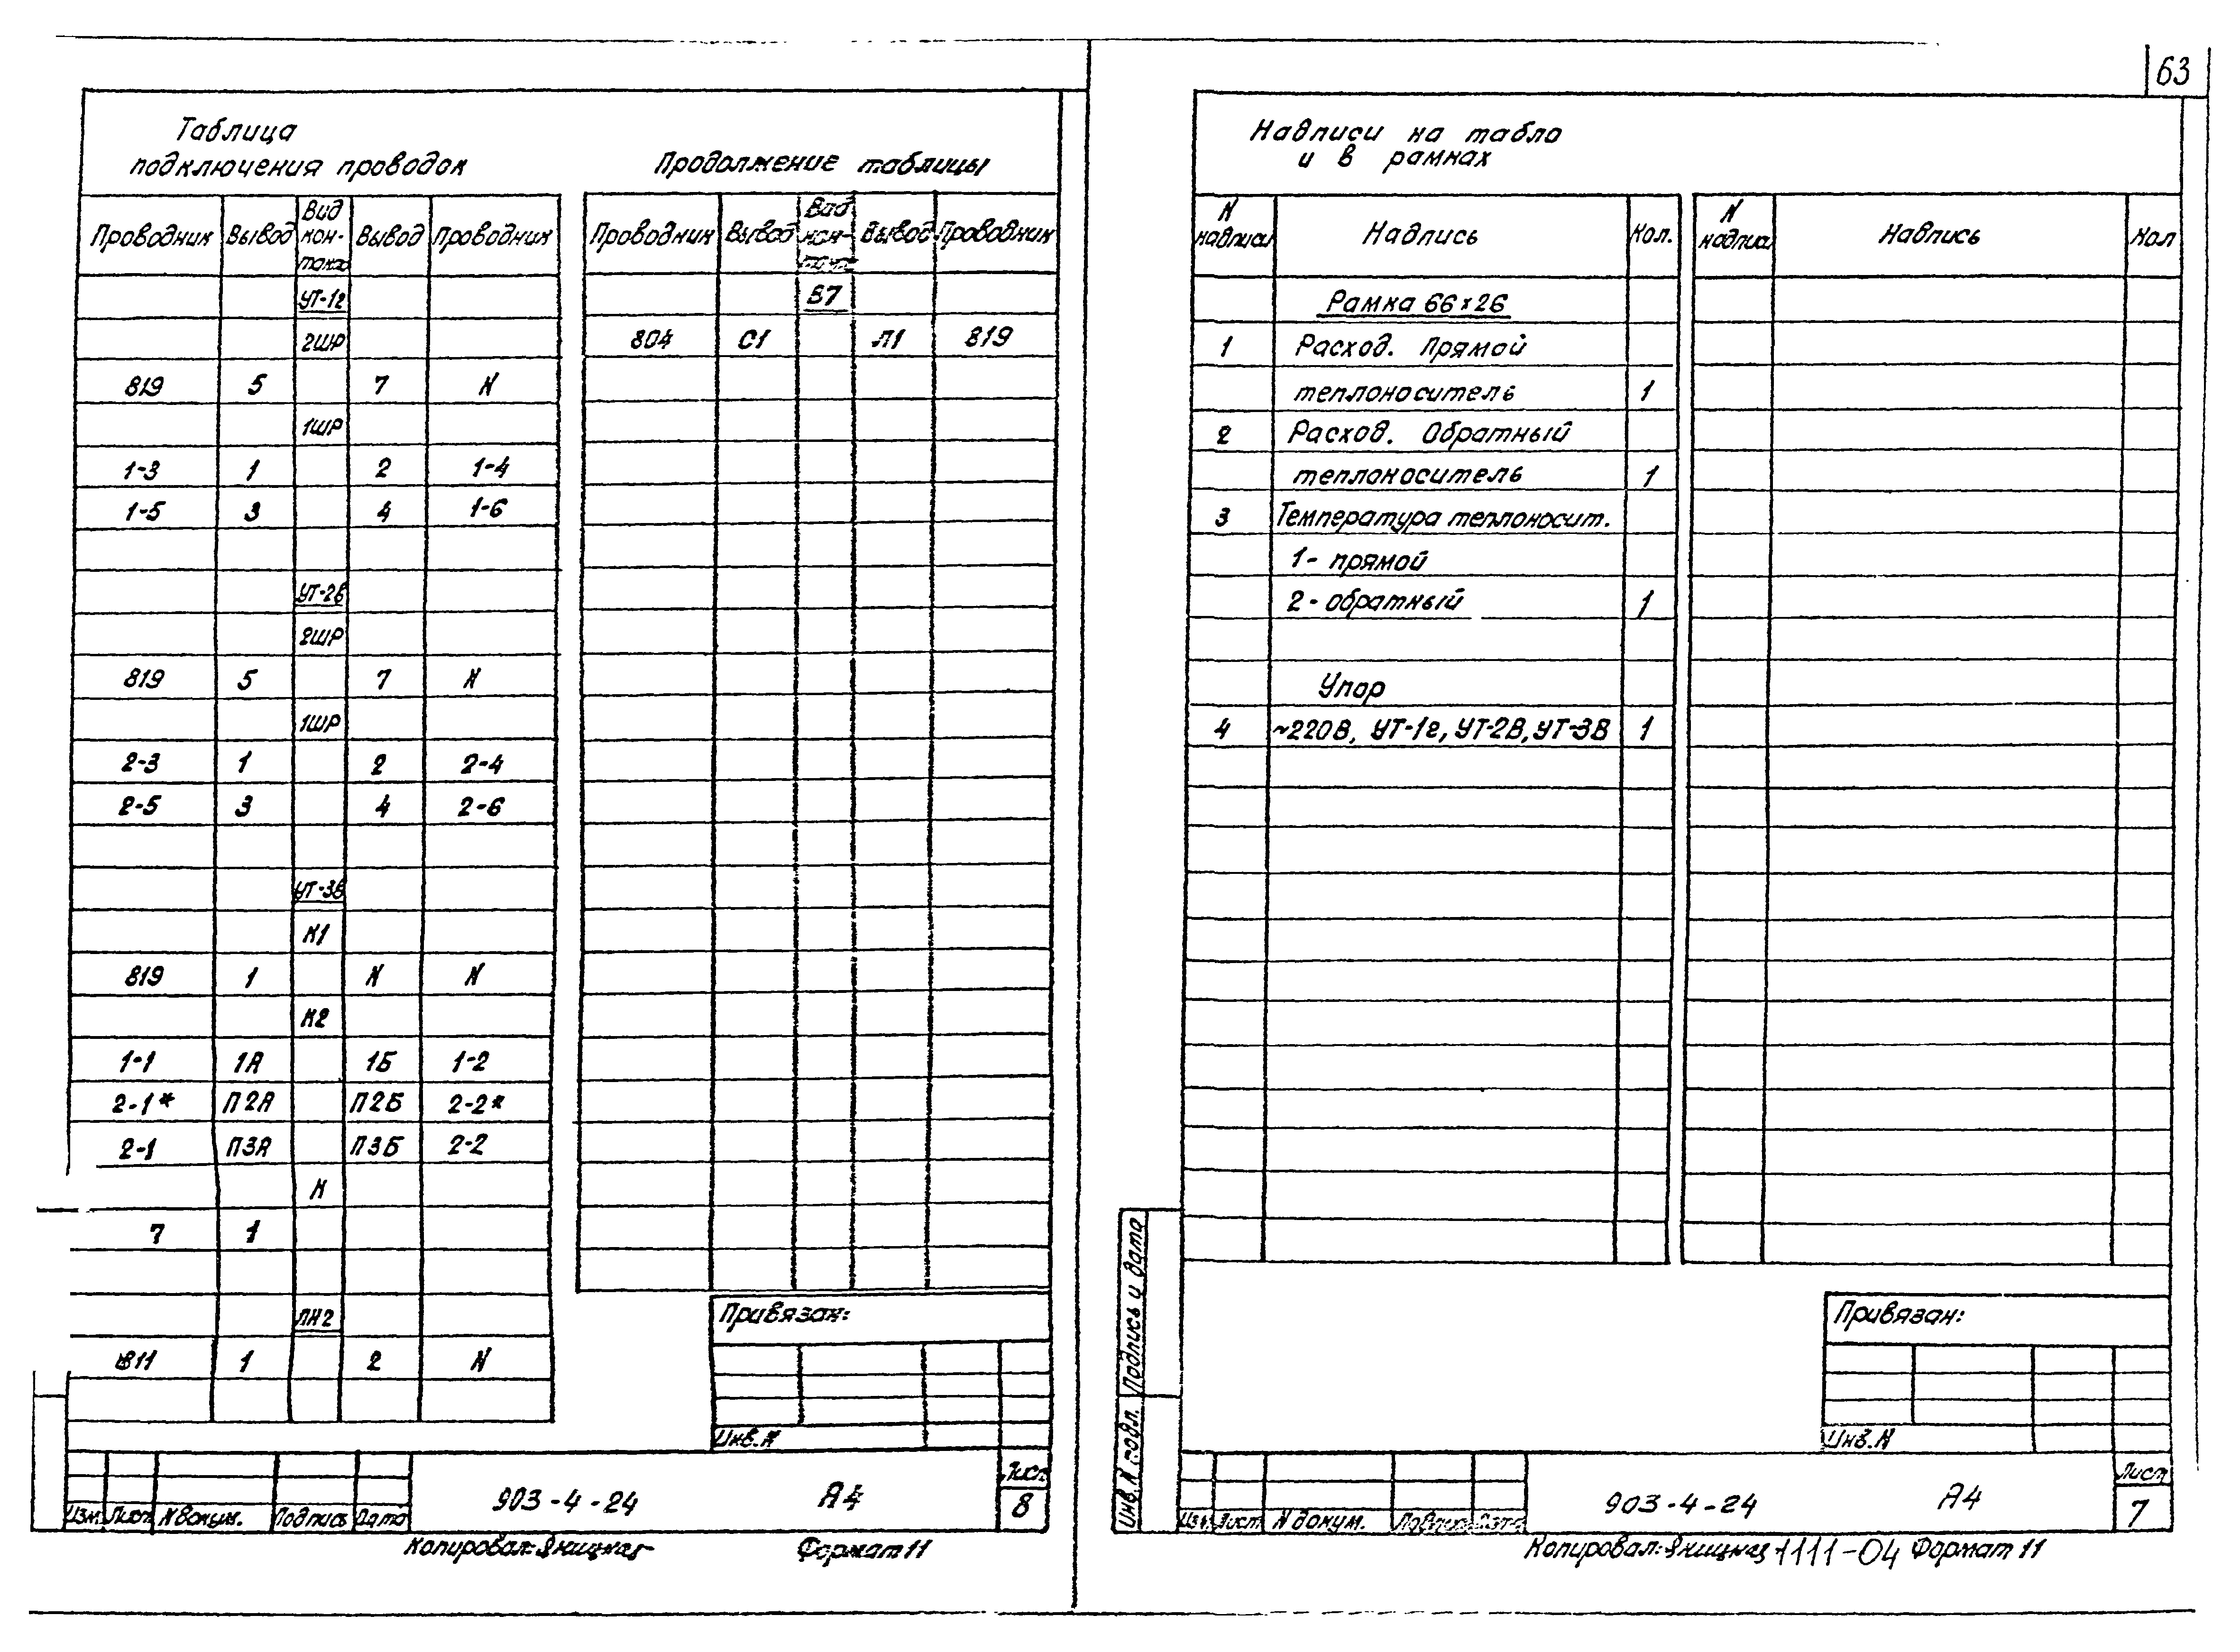 63
Таблица
подключения проводок
Проводник Вывод Вид кон-такта Вывод Проводник
УТ-1г
2ШР
819 5 7 N
1ШР
1-3 1 2 1-4
1-5 3 4 1-6
УТ-2в
2ШР
819 5 7 N
1ШР
2-3 1 2 2-4
2-5 3 4 2-6
УТ-3в
К1
819 1 N N
К2
1-1 1А 1Б 1-2
2-1* П2А П2Б 2-2*
2-1 П3А П3Б 2-2
К
7 1
ПН2
811 1 2 N
Продолжение таблицы
Проводник Вывод Вид кон-такта Вывод Проводник
В7
804 С1 Л1 819
Привязан:
Инв. N
Изм. Лист N докум. Подпись Дата
903-4-24 А4
Лист
8
Копировал: Яницкая Формат 11
Надписи на табло
и в рамках
N надписи Надпись Кол. N надписи Надпись Кол
Рамка 66×26
1 Расход. Прямой
теплоноситель 1
2 Расход. Обратный
теплоноситель 1
3 Температура теплоносит.
1- прямой
2- обратный 1
Упор
4 ~220В, УТ-1г, УТ-2В, УТ-3В 1
Привязан:
Инв. N
Инв. N подл. Подпись и дата
Изм. Лист N докум. Подпись Дата
903-4-24 А4
Лист
7
Копировал: Яницкая 1111-04 Формат 11